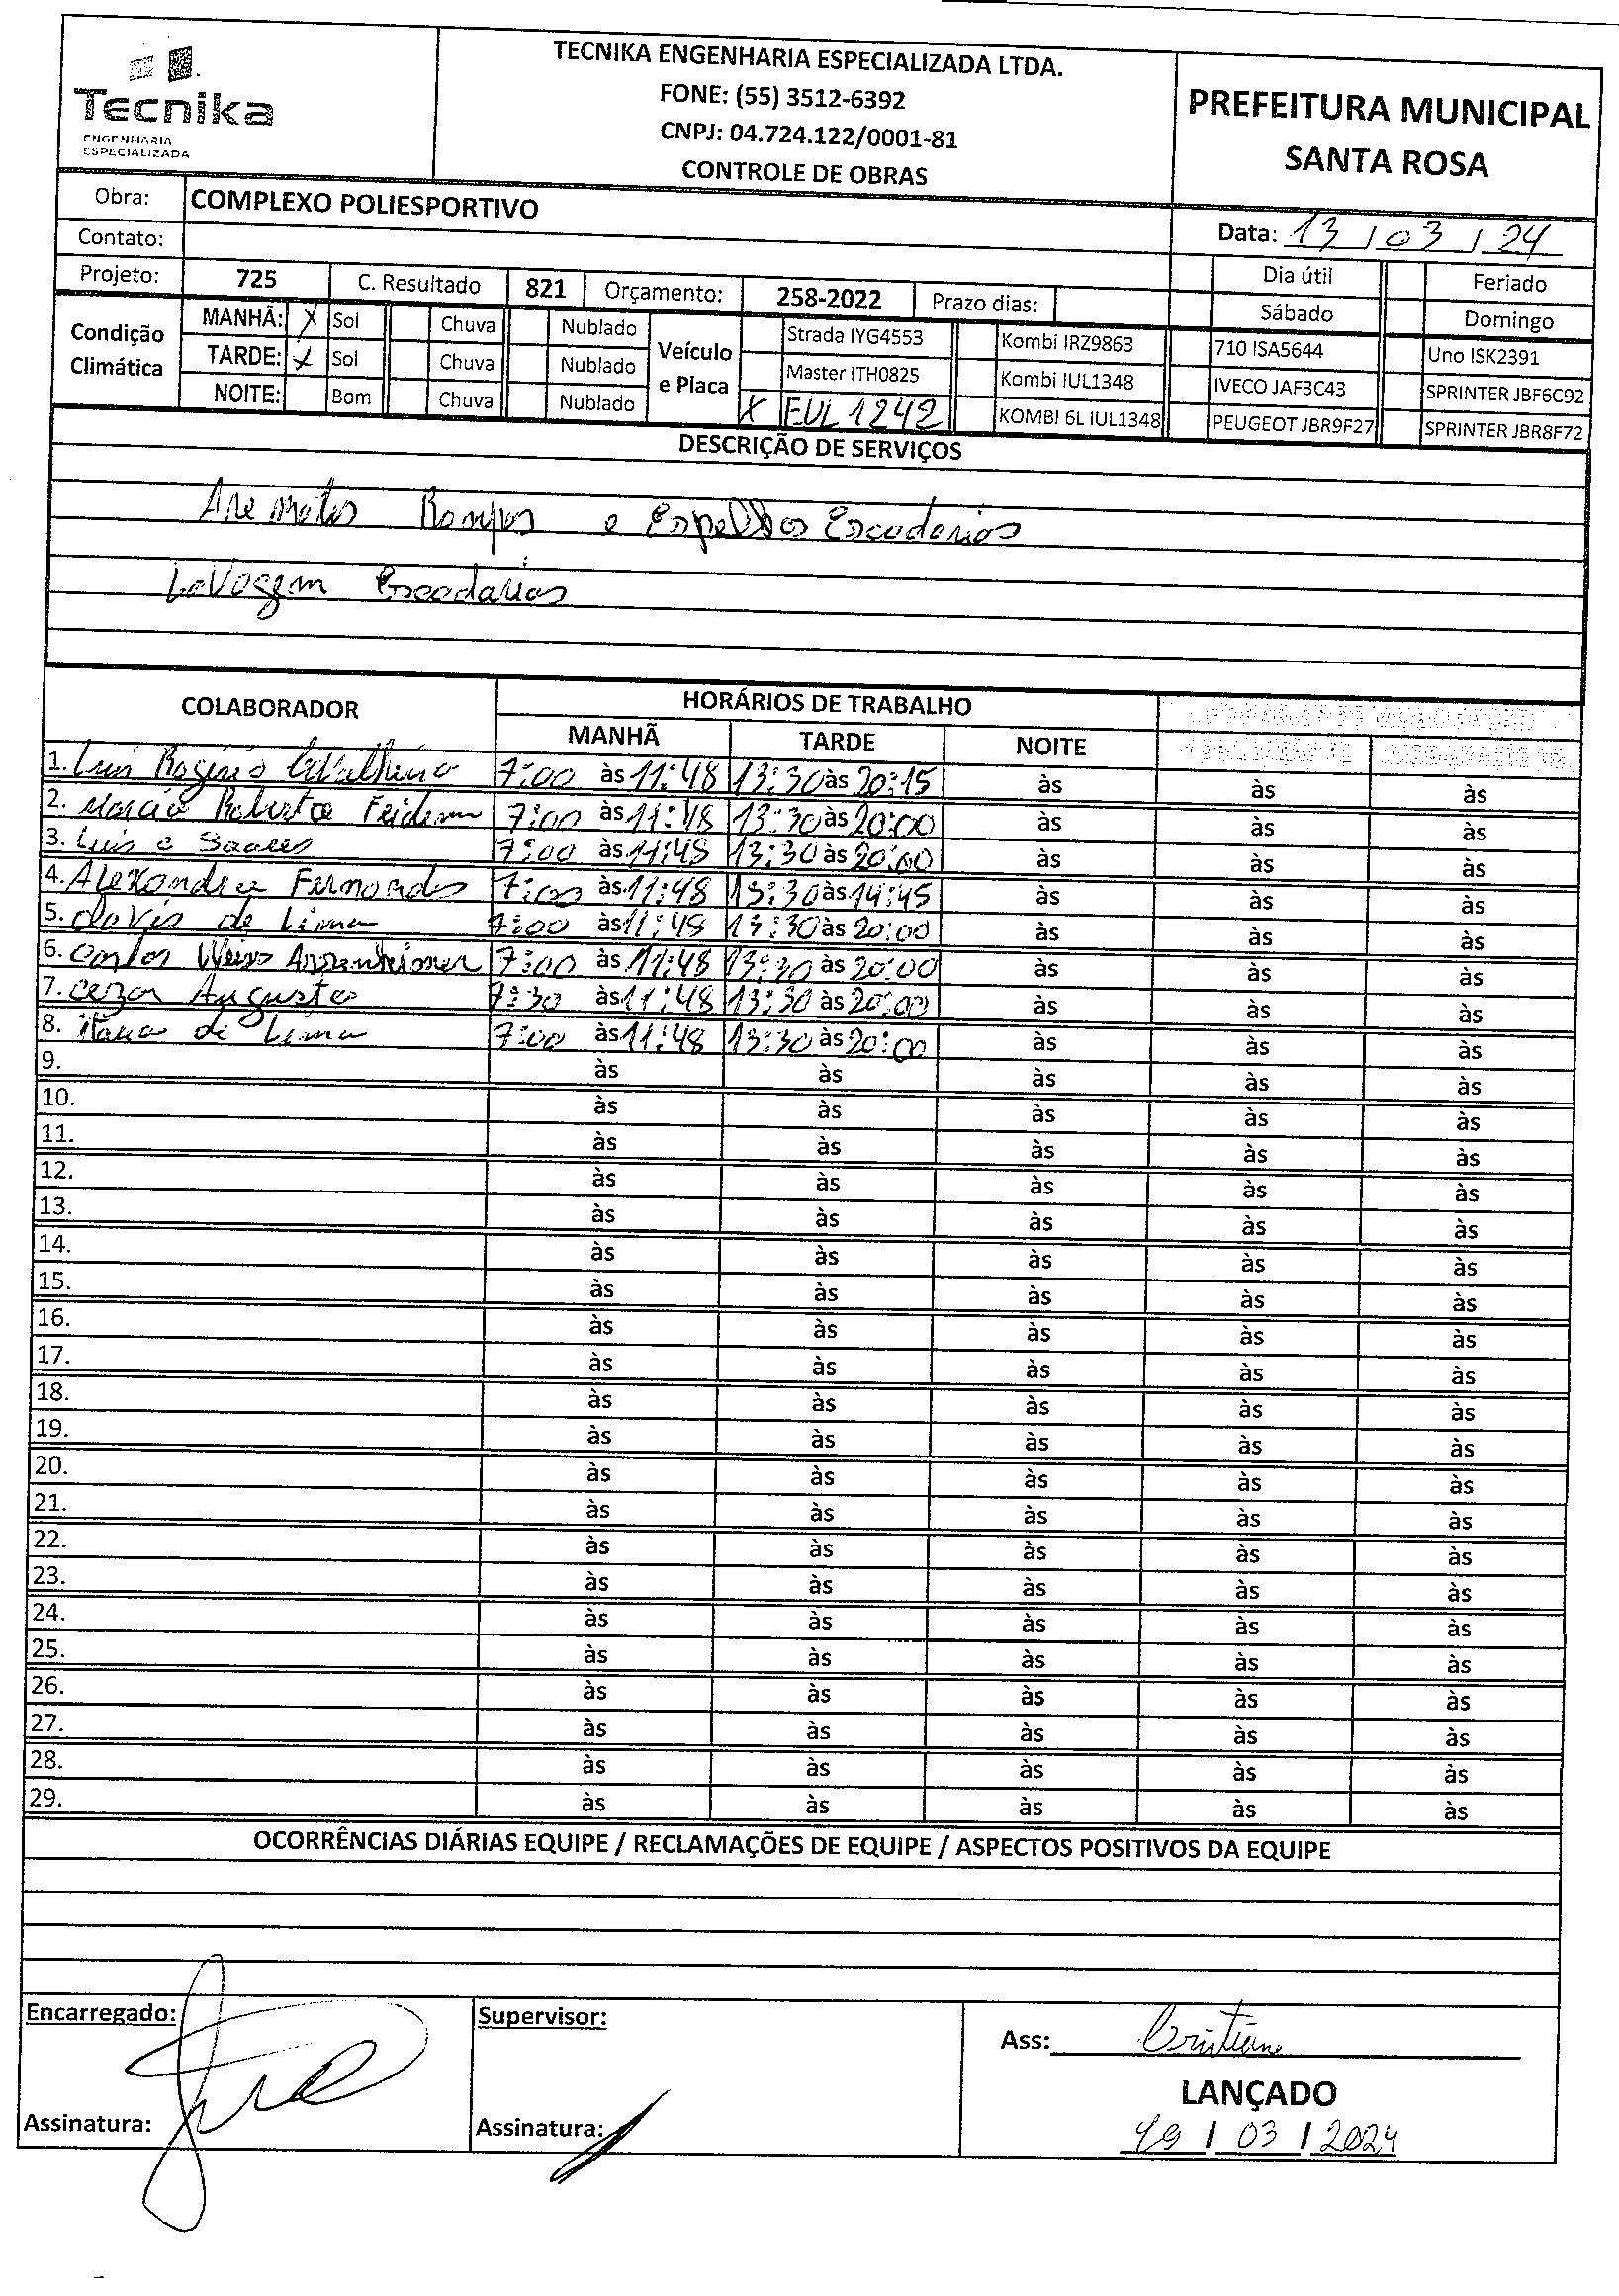 Tecnika
ENGENHARIA
ESPECIALIZADA
TECNIKA ENGENHARIA ESPECIALIZADA LTDA.
FONE: (55) 3512-6392
CNPJ: 04.724.122/0001-81
CONTROLE DE OBRAS
PREFEITURA MUNICIPAL
SANTA ROSA
Obra: COMPLEXO POLIESPORTIVO
Data: 13 / 03 / 24
Contato:
Projeto: 725 C. Resultado 821 Orçamento: 258-2022 Prazo dias: Dia útil Feriado
Sábado Domingo
Condição Climática
MANHÃ: X Sol Chuva Nublado
TARDE: X Sol Chuva Nublado
NOITE: Bom Chuva Nublado
Veículo e Placa
Strada IYG4553 Kombi IRZ9863 710 ISA5644 Uno ISK2391
Master ITH0825 Kombi IUL1348 IVECO JAF3C43 SPRINTER JBF6C92
X EUL 1242 KOMBI 6L IUL1348 PEUGEOT JBR9F27 SPRINTER JBR8F72
DESCRIÇÃO DE SERVIÇOS
Rampas e Espelhos Escadarias
Lavagem Escadarias
COLABORADOR HORÁRIOS DE TRABALHO
MANHÃ TARDE NOITE
1. Luis Rogério 7:00 às 11:48 13:30 às 20:15 às às às
2. Marcio Roberto 7:00 às 11:48 13:30 às 20:00 às às às
3. Luis e Soares 7:00 às 11:48 13:30 às 20:00 às às às
4. Alexandre Fernandes 7:00 às 11:48 13:30 às 14:45 às às às
5. clovis de Lima 7:00 às 11:48 13:30 às 20:00 às às às
6. Carlos 7:00 às 11:48 13:30 às 20:00 às às às
7. cezar Augusto 7:30 às 11:48 13:30 às 20:00 às às às
8. de Lima 7:00 às 11:48 13:30 às 20:00 às às às
9. às às às às às
10. às às às às às
11. às às às às às
12. às às às às às
13. às às às às às
14. às às às às às
15. às às às às às
16. às às às às às
17. às às às às às
18. às às às às às
19. às às às às às
20. às às às às às
21. às às às às às
22. às às às às às
23. às às às às às
24. às às às às às
25. às às às às às
26. às às às às às
27. às às às às às
28. às às às às às
29. às às às às às
OCORRÊNCIAS DIÁRIAS EQUIPE / RECLAMAÇÕES DE EQUIPE / ASPECTOS POSITIVOS DA EQUIPE
Encarregado: Supervisor:
Ass: Cristiane
LANÇADO
Assinatura: Assinatura:
19 / 03 / 2024